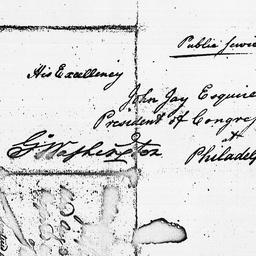 Public Servic
His Excellency
John Jay Esquire
President of Congres
at
Philadelp
G:Washington